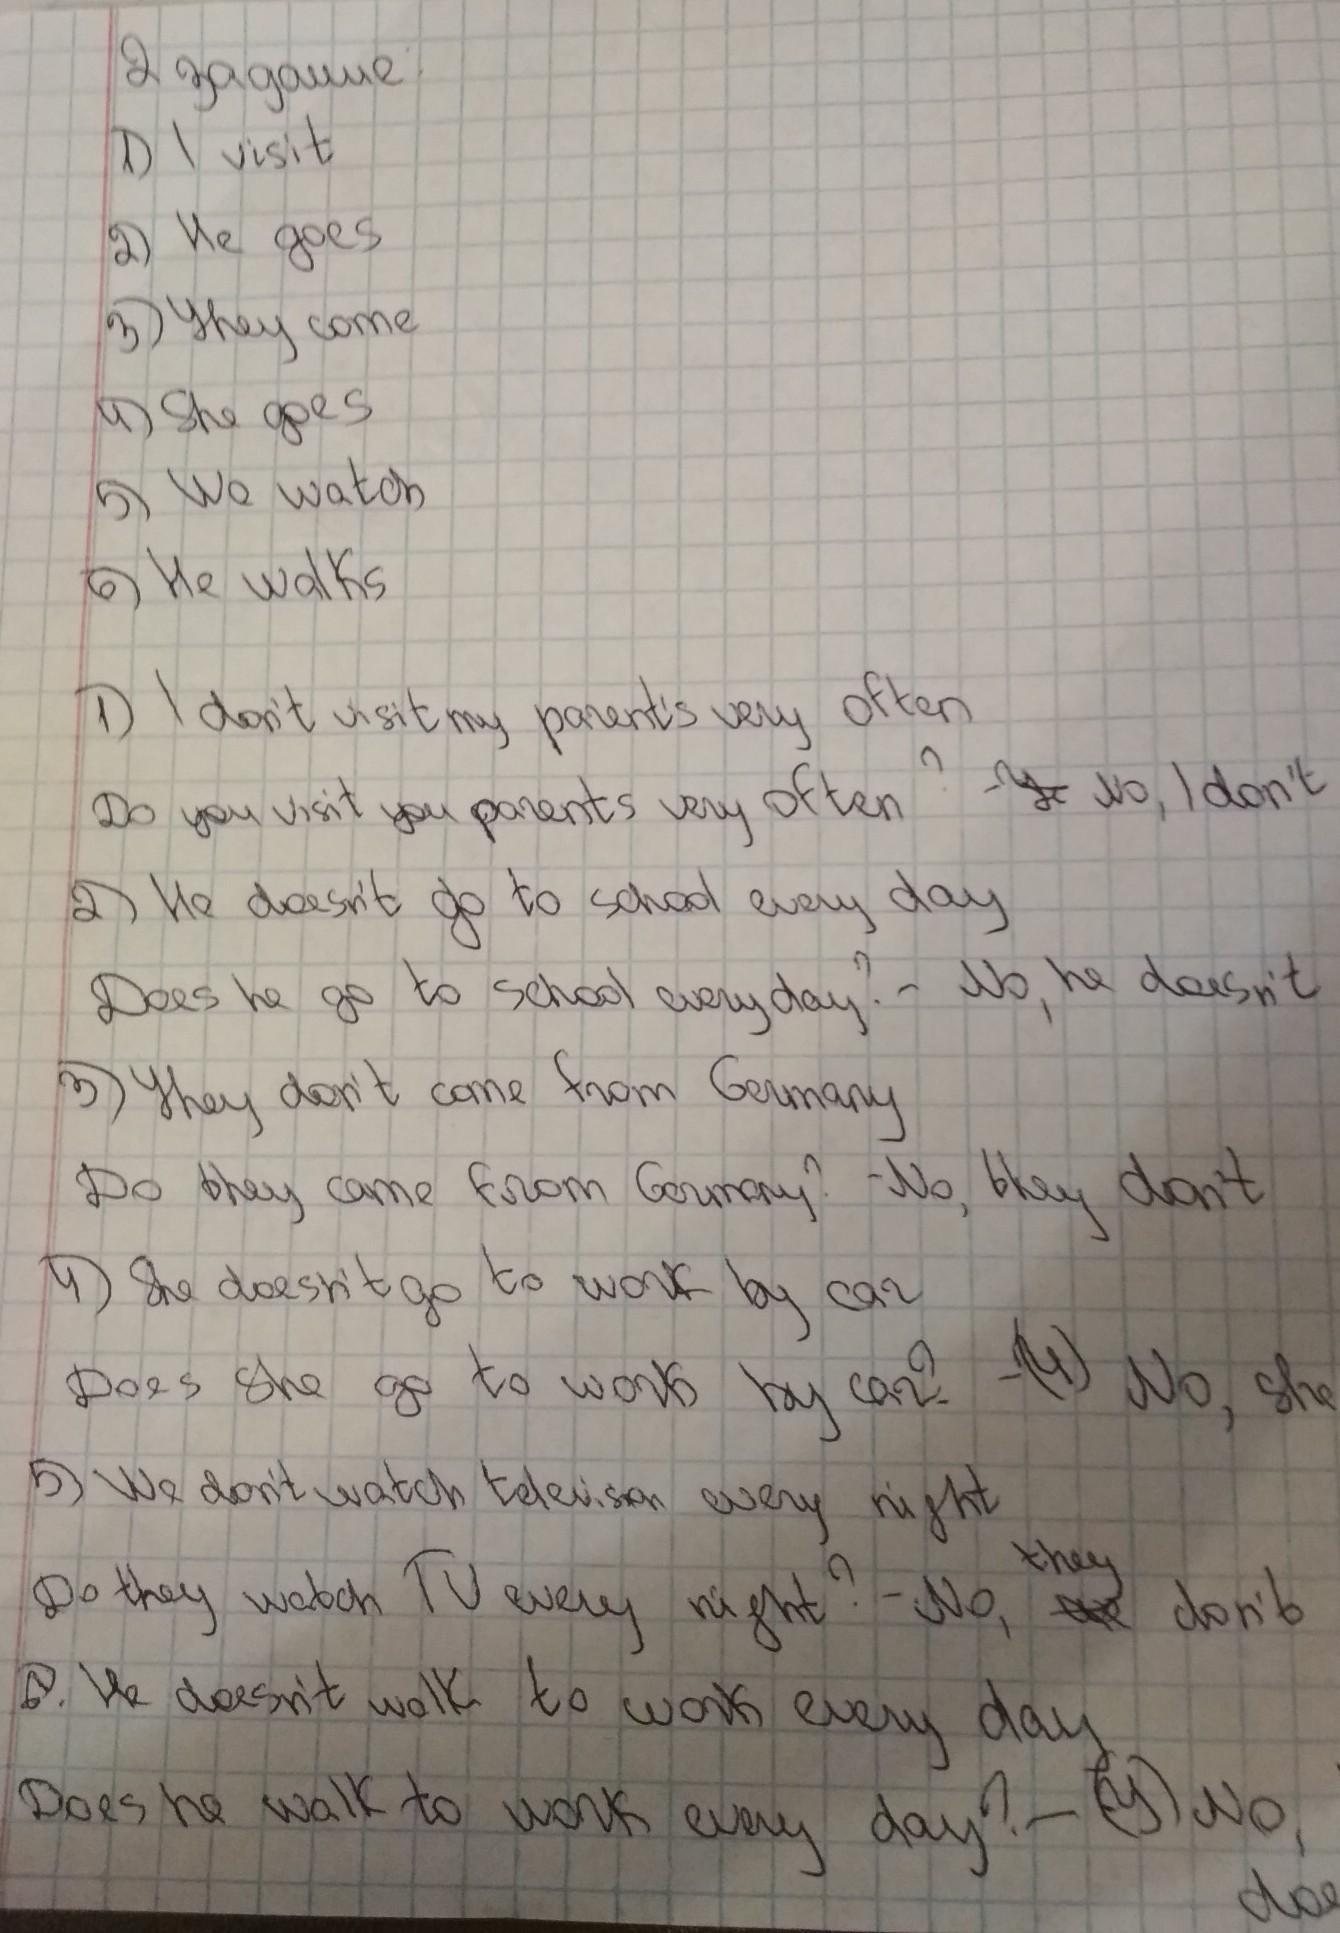 2 задание:
1) I visit
2) He goes
3) They come
4) She goes
5) We watch
6) He walks
1) I don't visit my parent's very often
Do you visit you parents very often? - No, I don't
2) He doesn't go to school every day
Does he go to school every day? - No, he doesn't
3) They don't come from Germany
Do they came from Germany? - No, they don't
4) She doesn't go to work by car
Does she go to work by car? - (4) No, she
5) We don't watch television every night
they
Do they watch TV every night? - No, don't
6. He doesn't walk to work every day
Does he walk to work every day? - (y) No,
doe